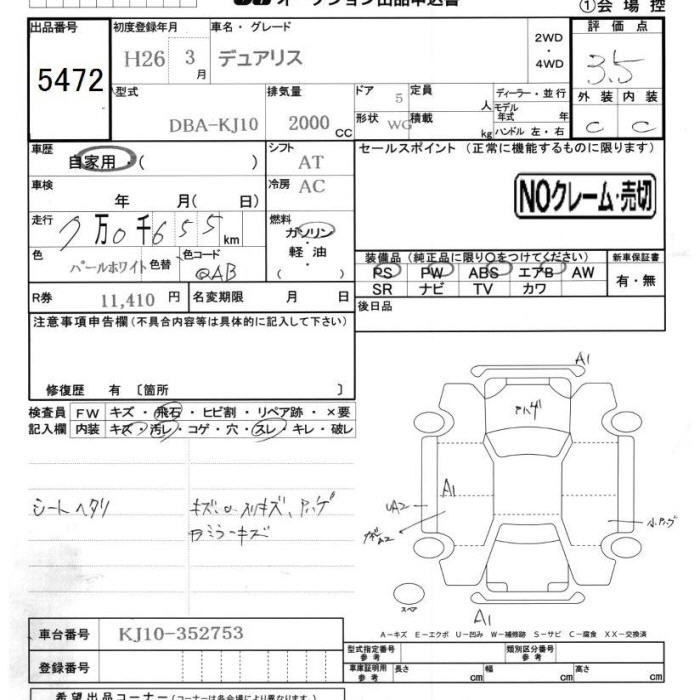 オークション出品申込書
①会場控
出品番号
5472
初度登録年月
H26 3月
車名・グレード
デュアリス
2WD
・
4WD
評価点
3.5
外装 内装
C C
型式
DBA-KJ10
排気量
2000 CC
ドア 5
定員 人
形状 WG
積載 kg
ディーラー・並行
モデル年式 年
ハンドル 左・右
車歴
自家用・( )
シフト AT
車検
年 月( 日)
冷房 AC
走行
7万0千655km
燃料
ガソリン
・
軽油
( )
色
パールホワイト
色替
色コード
QAB
R券 11,410円
名変期限 月 日
セールスポイント(正常に機能するものに限ります)
NOクレーム・売切
装備品(純正品に限り○をつけてください)
PS PW ABS エアB AW
SR ナビ TV カワ
新車保証書
有・無
後日品
注意事項申告欄(不具合内容等は具体的に記入して下さい)
修復歴 有 〔箇所 〕
検査員記入欄
FW キズ・飛石・ヒビ割・リペア跡・×要
内装 キズ・汚レ・コゲ・穴・スレ・キレ・破レ
シートヘタリ
A1
A1
UA2
A2
A1
スペア
A-キズ E-エクボ U-凹み W-補修跡 S-サビ C-腐食 XX-交換済
車台番号 KJ10-352753
登録番号
型式指定番号 参考
類別区分番号 参考
車庫証明用 参考
長さ cm
幅 cm
高さ cm
希望出品コーナー(コーナーは各会場により異なります)